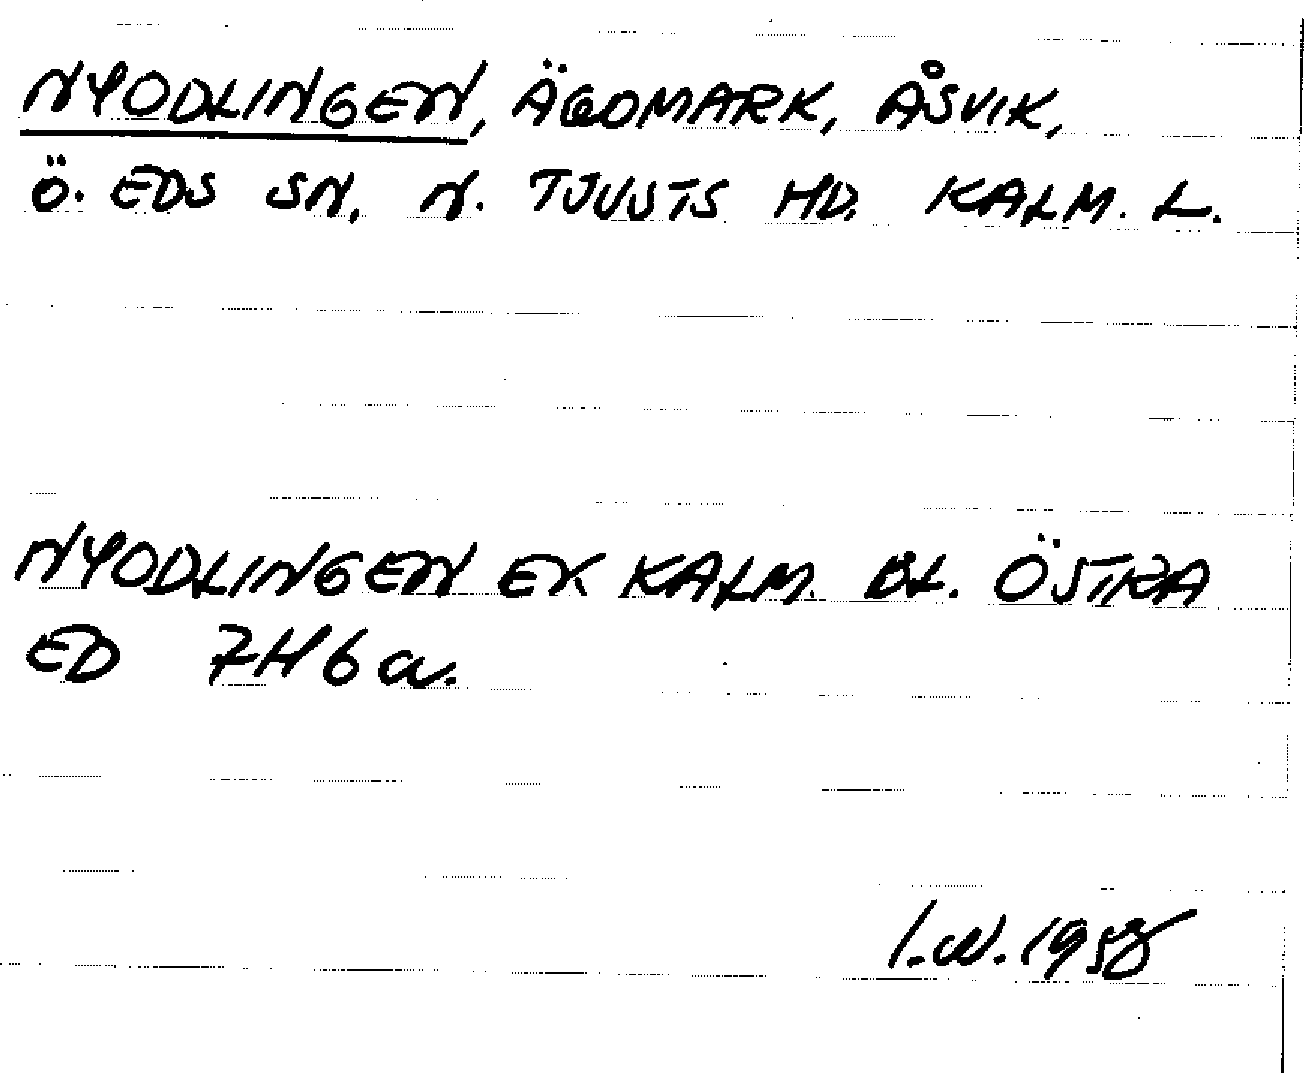 NYODLINGEN, ÄGOMARK, ÅSVIK,
Ö. EDS SN, N. TJUSTS HD. KALM. L.
NYODLINGEN EK KALM. BL. ÖSTRA
ED 7H6a.
I.W. 1958